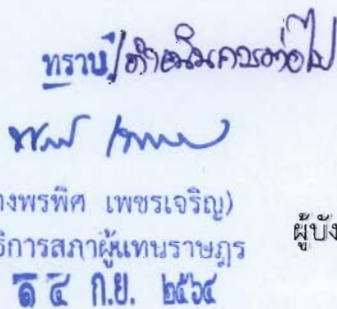 ทราบ/ดำเนินการต่อไป
งพรพิศ เพชรเจริญ)
ธิการสภาผู้แทนราษฎร
ผู้บัง
๑๔ ก.ย. ๒๕๖๔